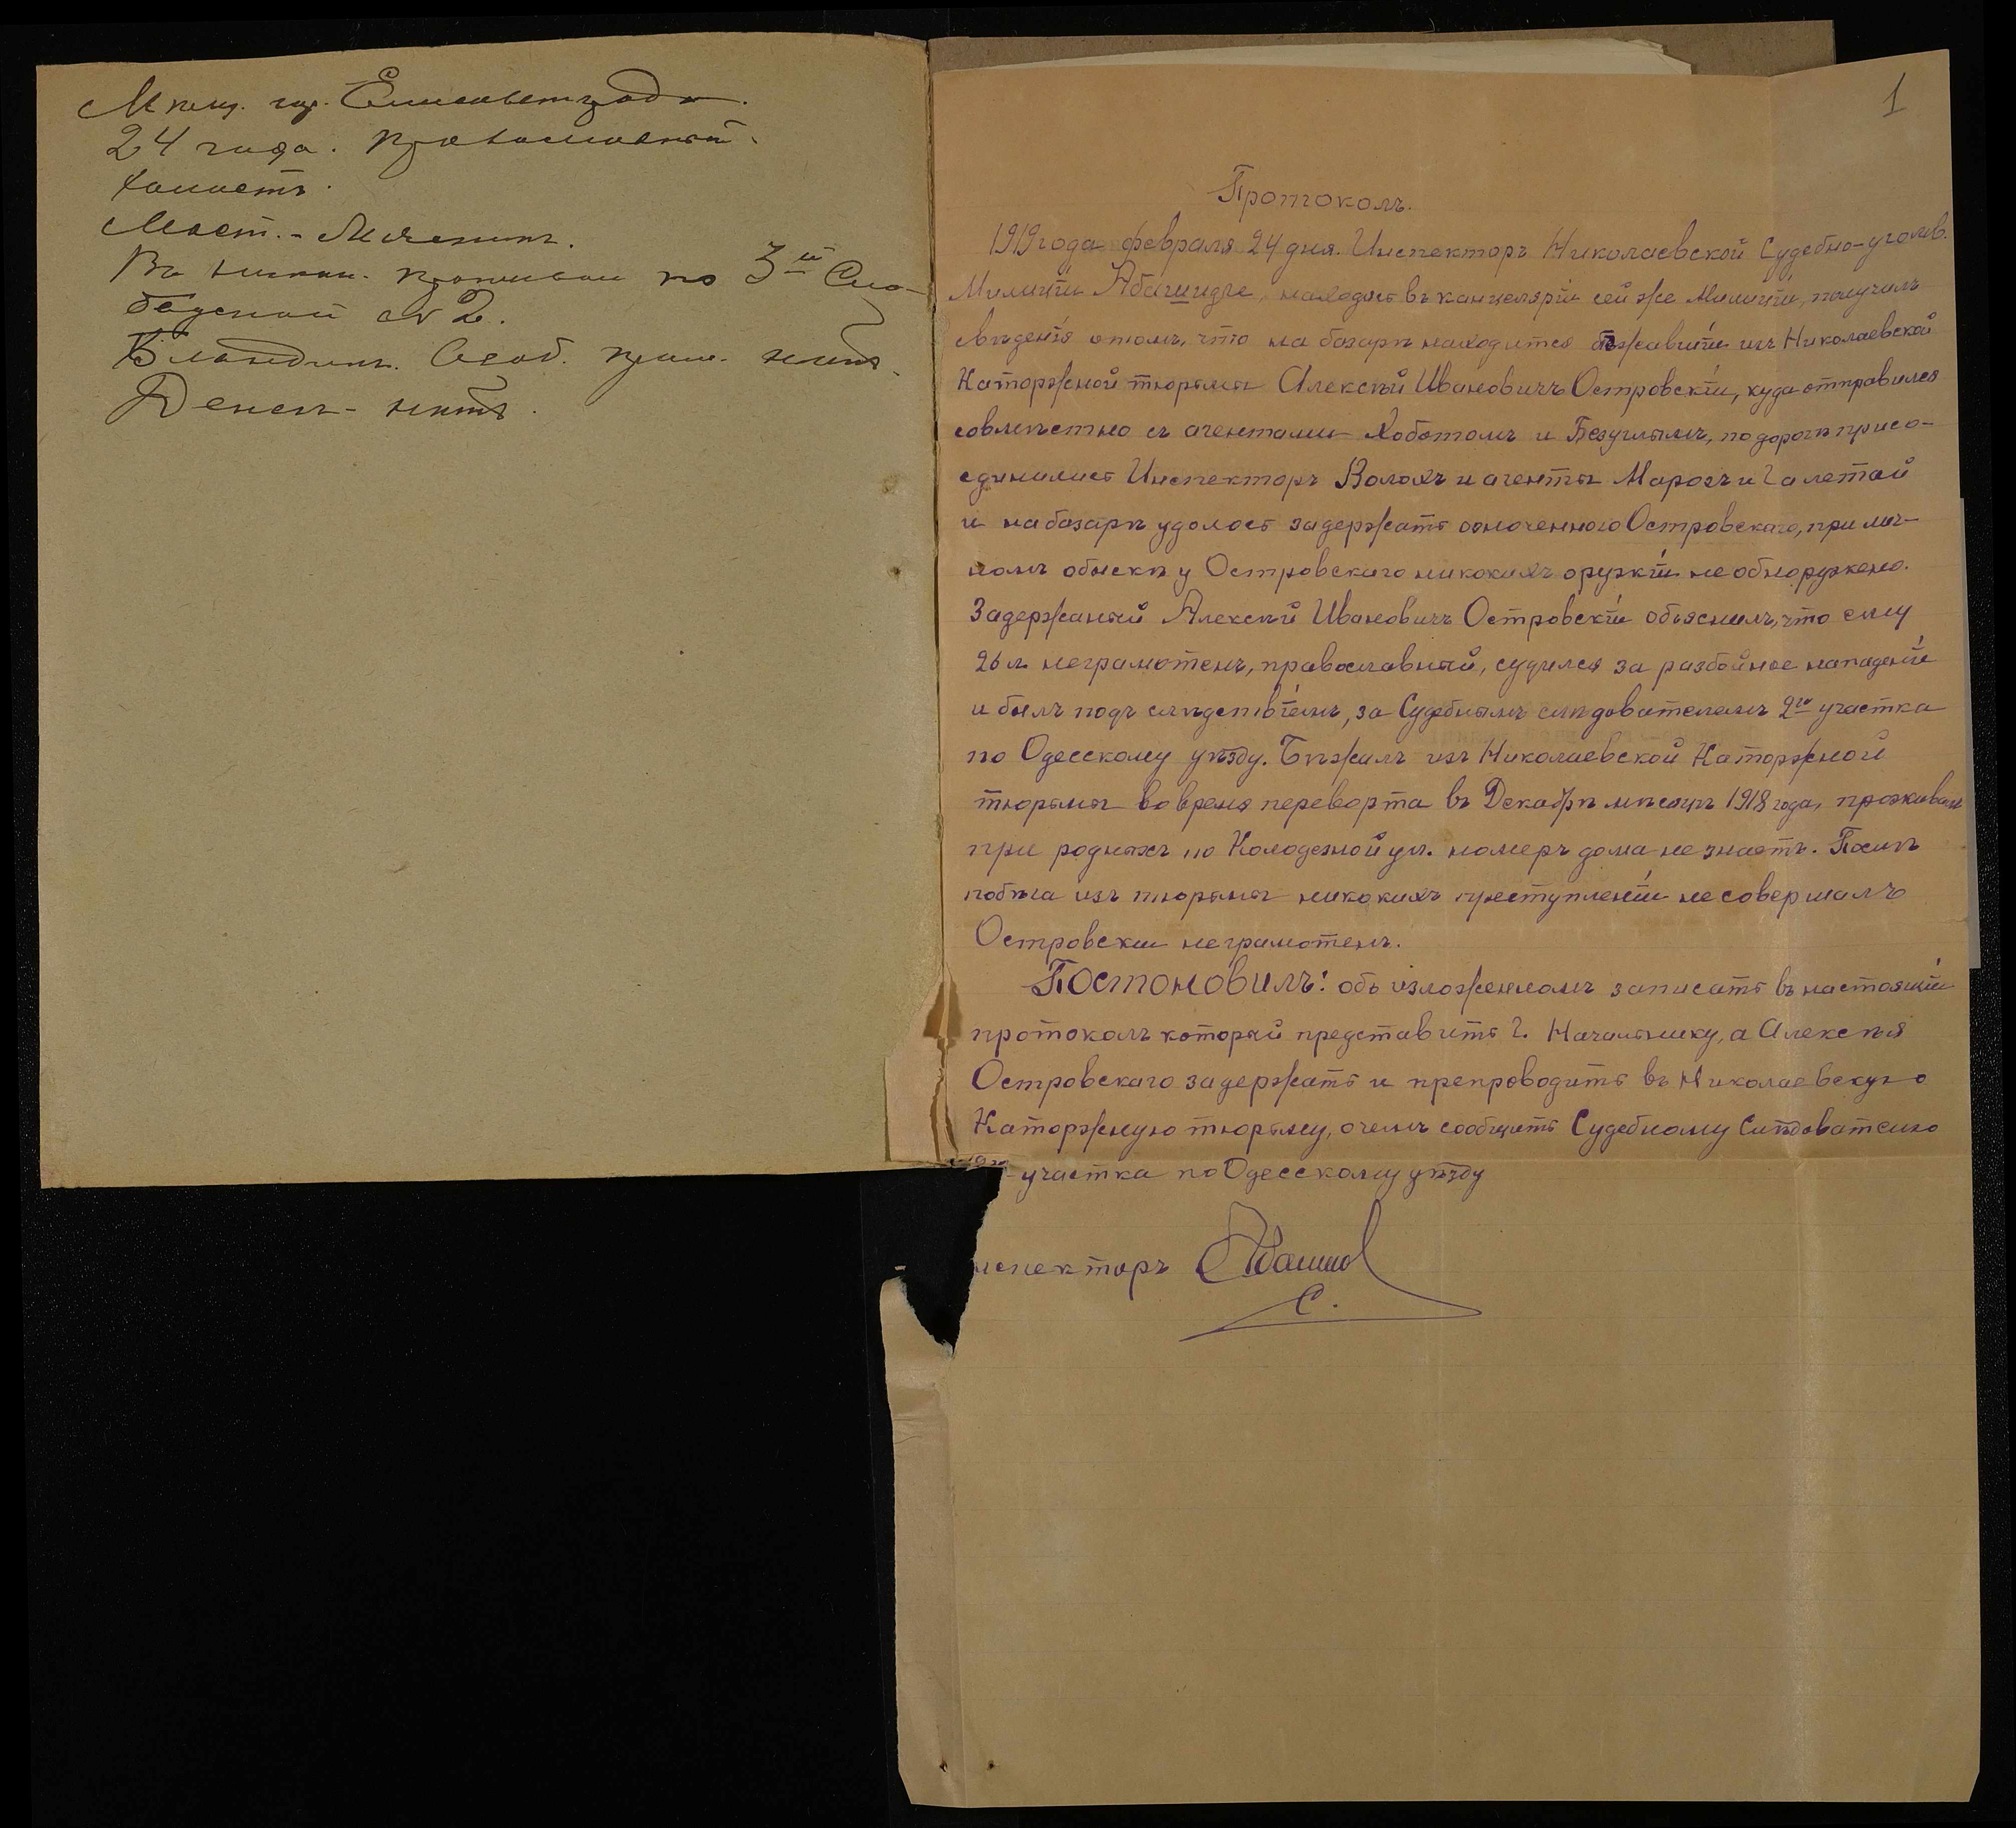 Мѣщ. гор. Елисаветграда.
24 года. православный.
холостъ.
Маст. -
В Никол. проживал по 3й Сло-
бодской № 2.
Блондинъ. Особ. прим. нѣтъ.
Денегъ - нѣтъ.
1
Протоколъ.
1919 года февраля 24 дня. Инспекторъ Николаевской Судебно-уголов.
Милиціи Абашидзе, находясь въ канцеляріи сей же Милиціи, получилъ
свѣденія отомъ, что на базарѣ находится бѣжавшій изъ Николаевской
Каторжной тюрьмы Алексѣй Ивановичъ Островскій, куда отправился
совмѣстно съ агентами Хоботомъ и Безуглымъ, по дорогѣ присо-
единились Инспекторъ Волохъ и агенты Марозъ и Галетай
и на базарѣ удолось задержать означенного Островскаго, при лич-
номъ обыскѣ у Островскаго никокихъ оружій не обноружено.
Задержаный Алексѣй Ивановичъ Островскій объяснилъ, что ему
26 л. неграмотенъ, православный, судился за разбойное нападеніе
и былъ подъ слѣдствіемъ, за Судебнымъ слѣдователемъ 2го участка
по Одесскому уѣзду. Бѣжалъ изъ Николаевской Каторжной
тюрьмы во время переворта въ Декабрѣ мѣсяцѣ 1918 года, проживалъ
при родныхъ по Колодезной ул. номеръ дома не знаетъ. Послѣ
побѣга изъ тюрьмы никокихъ преступленій не совершалъ
Островскій неграмотенъ.
Постоновилъ: объ изложенномъ записать въ настоящій
протоколъ который представить Г. Начальнику, а Алексѣя
Островскаго задержать и препроводить въ Николаевскую
Каторжную тюрьму, очемъ сообщить Судебному Слѣдователю
участка по Одесскому уѣзду
нспекторъ
С.